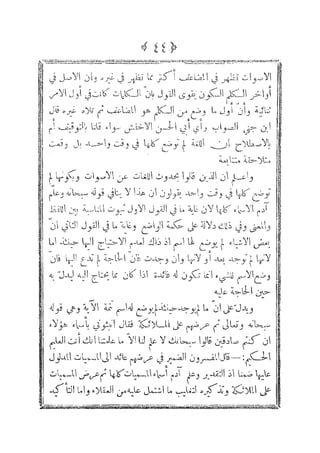 ﴿ ٤٤ ﴾
الاصوات تظهر في المضاعف أكثر مما تظهر في غيره وان الاصل في
أواخر الكلم السكون يقوى القول بانّ الكلمات كانت في أول الامر
ثنائية وأن أول ما وضع من الكلم هو المضاعف ثم تلاه غيره قال
ابن جني الصواب رأي أبي الحسن الاخفش سواء قلنا بالتوقيف أم
بالاصطلاح ان اللغة لم توضع كلها في وقت واحد بل وقعت
متلاحقة متتابعة
واعلم ان الذين قالوا بحدوث اللغات عن الاصوات وبكونها لم
توضع كلها في وقت واحد يقولون ان هذا لا ينافي قوله سبحانه وعلم
آدم الاسماء كلها لان غاية ما في القول الاول ثبوت المناسبة بين اللفظ
والمعنى وفي ذلك دلالة على حكمة الواضع وغاية ما في القول الثاني انّ
بعض الاشياء لم يوضع لها اسم اذ ذاك لعدم الاحتياج اليها حينئذ اما
لانها لم توجد بعد أو لانها وان وجدت فانّ الحاجة لم تدع اليها فانّ
وضع الاسم للشيء انما تكون له فائدة اذا كان مما يحتاج اليه ليدل به
حين الحاجة عليه
ويدل على انّ ما لم يوجد حينئذ لم يوضع له اسم تتمة الآية وهي قوله
سبحانه وتعالى ثم عرضهم على الملائكة فقال انبئوني بأسماء هؤلاء
ان كنتم صادقين قالوا سبحانك لا علم لنا الاّ ما علمتنا انك أنت العليم
الحكيم :— قال المفسرون الضمير في عرضهم عائد الى المسميات المدلول
عليها ضمنا اذ التقدير وعلم آدم أسماء المسميات كلها ثم عرض المسميات
على الملائكة وتذكيره لتغليب ما اشتمل عليه من العقلاء واما التأكيد